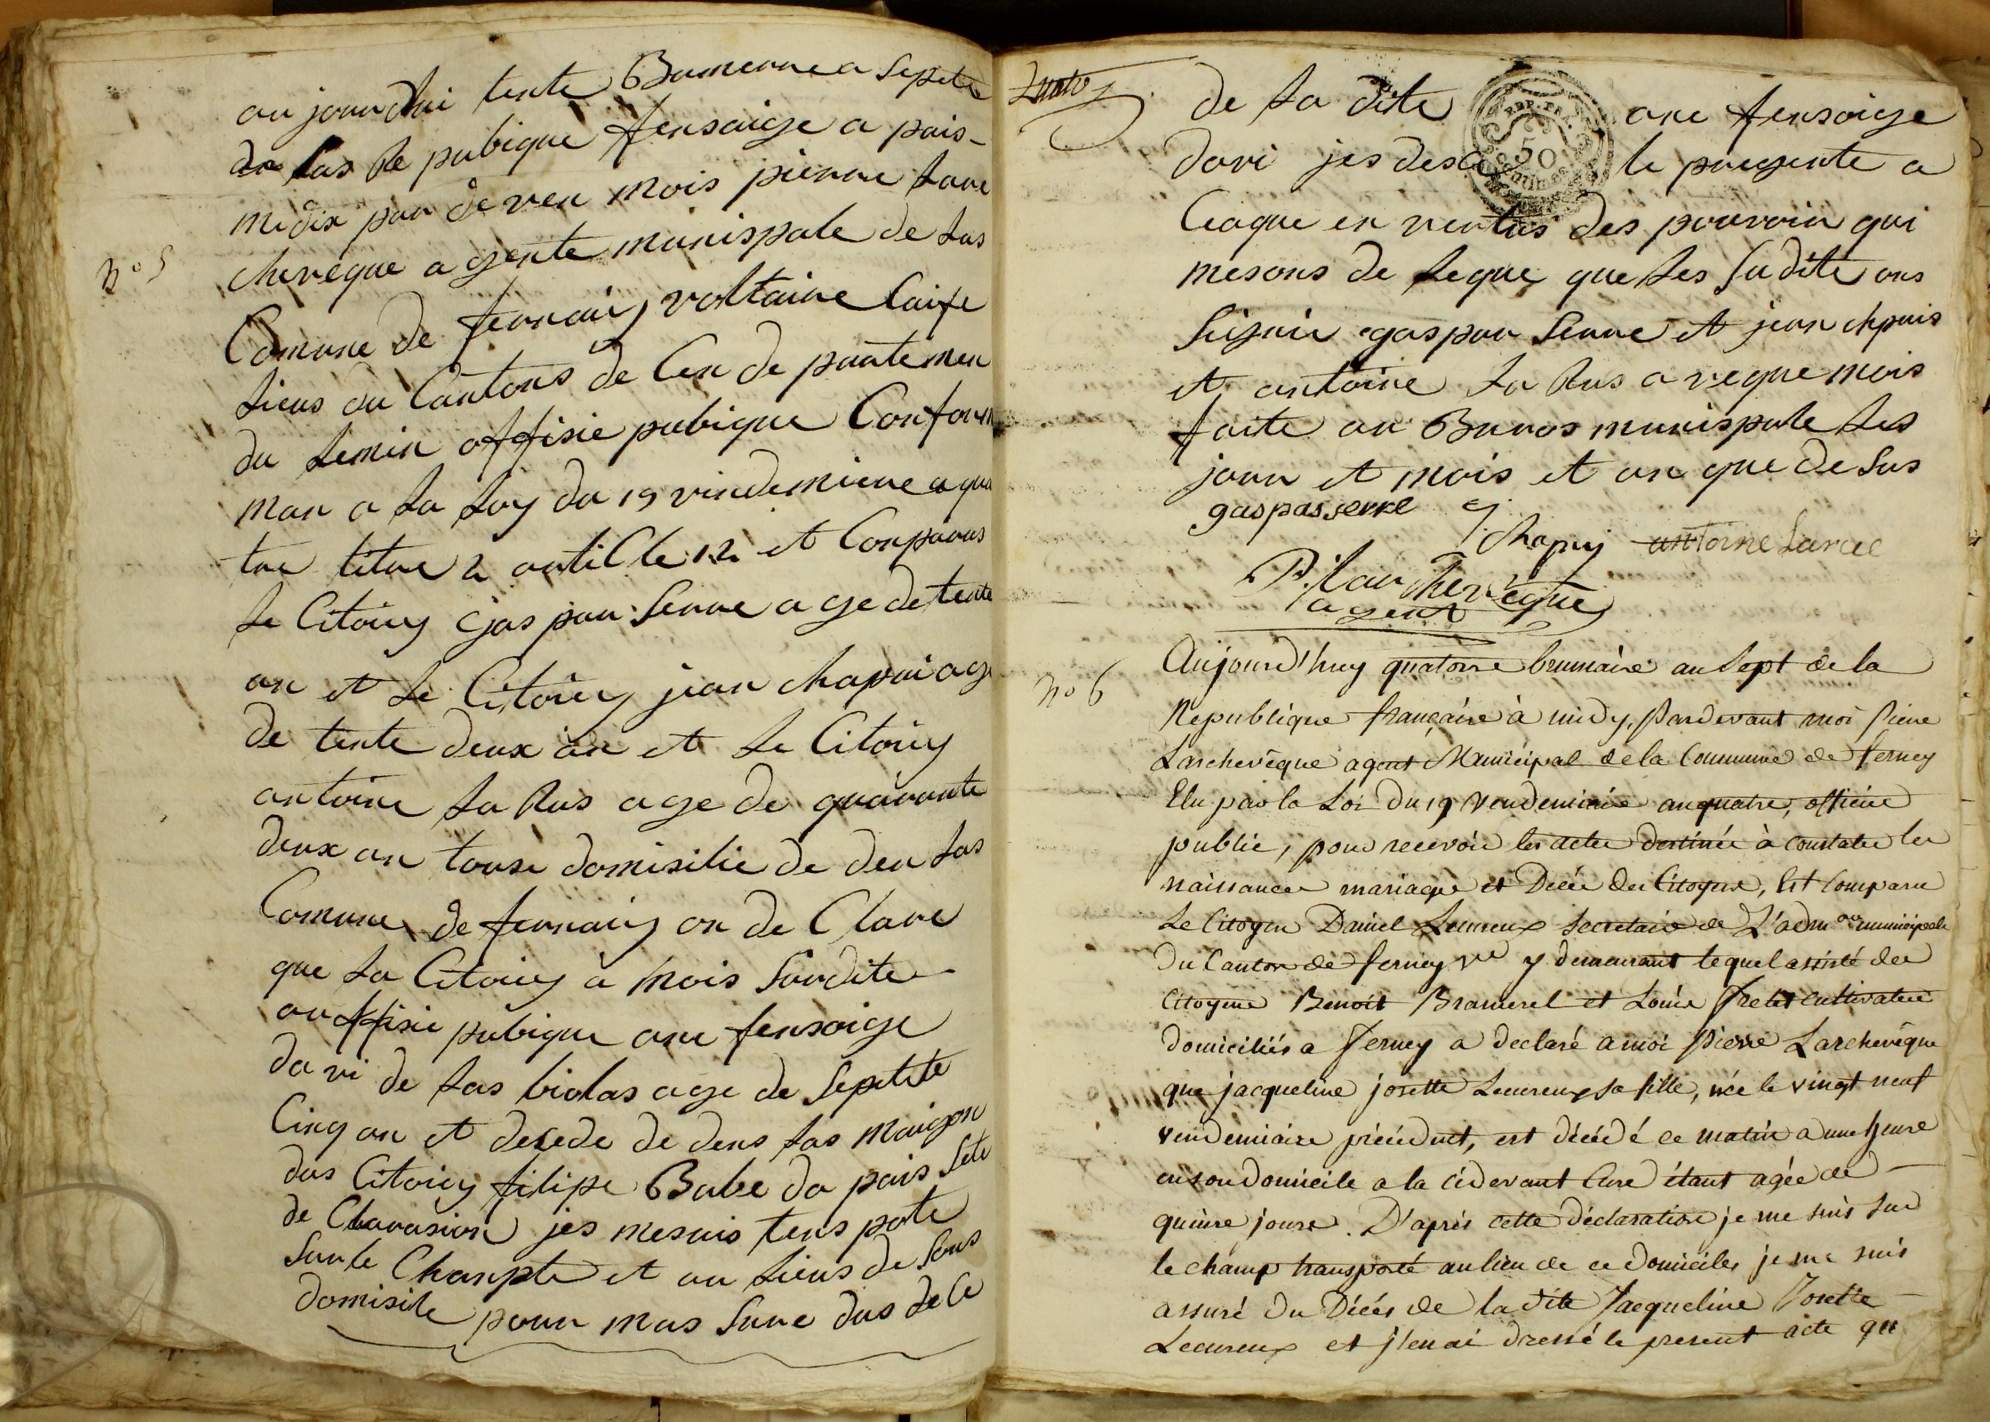 au jourdhui tente Brumenne a septe
de las Re pubique fensaige a pais-
midix par de ven mois pienne Lare
cheveque a gente munispale de las
n° 5
Comune de fernaiy voltaine Caife
Lieus du Cantons de Cen de partemen
du Lemin offisie pubique Conform
man a la Loy du 19 vindemiene a qua
tre titre 2 article 12 et Conparus
Le Citoiey gaspar Senne age de tente
an et Le Citoiey jean chapui age
de tente deux an et Le Citoiey
antoine La Rus age de quarante
deux an touse domisilie de den las
Comune de fernaiy on de Clare
que la Citoiey a mois Surdite
auffisie pubique ane fensoige
davi de las violas age de Septete
Cinq an et desede de dens las maigon
dus Citoiey filipe Babe da pais Sete
de Clarasion jes mesuis tens pote
Sur le Chanpte et au Lieus de Sous
domisile pour mas Sure dus de Ce
de La dite ane fensoige
REP. FRA.
50
centimes
davi jes desé le pregente a
Ceaque en vertus des pouvoir qui
mesons de Legue que Les Sudite ons
Signie gaspar Senne et jean chpuis
et antoine La Rus a veque mois
faite au Buros munispale Les
jour et mois et an que de Sus
gaspasserre J Chapuy antoine Larue
P. Lar chevêque
agent
n° 6
Aujourd'huy quatorze brumaire an Sept de la
Republique française à midy, Pardevant moi Piere
Larchevêque agent Municipal de la Commune de ferney
Elu par la Loi du 19 Vendemiaire an quatre, officier
public, pour recevoir les actes destinés à constater les
naissances mariages et Décès des Citoyens, Est comparu
Le Citoyen Daniel Lecureux Secretaire de L'adm.on municipale
du Canton de ferney Vre y demeurant lequel assisté des
Citoyens Benoit Bramerel et Louis Fretet cultivateurs
domiciliés a ferney a declaré a moi Pierre Larchevêque
que jacqueline josette Lecureux sa fille, née le vingt neuf
vendemiaire précédent, est décédé ce matin a une heure
en son domicile a la cidevant Cure étant agée de
quinze jours. D'après cette déclaration je me suis sur
le champ transporté au lieu de ce domicile, je me suis
assuré du Décès de la dite Jacqueline Josette
Lecureux et j'en ai dressé le present acte que